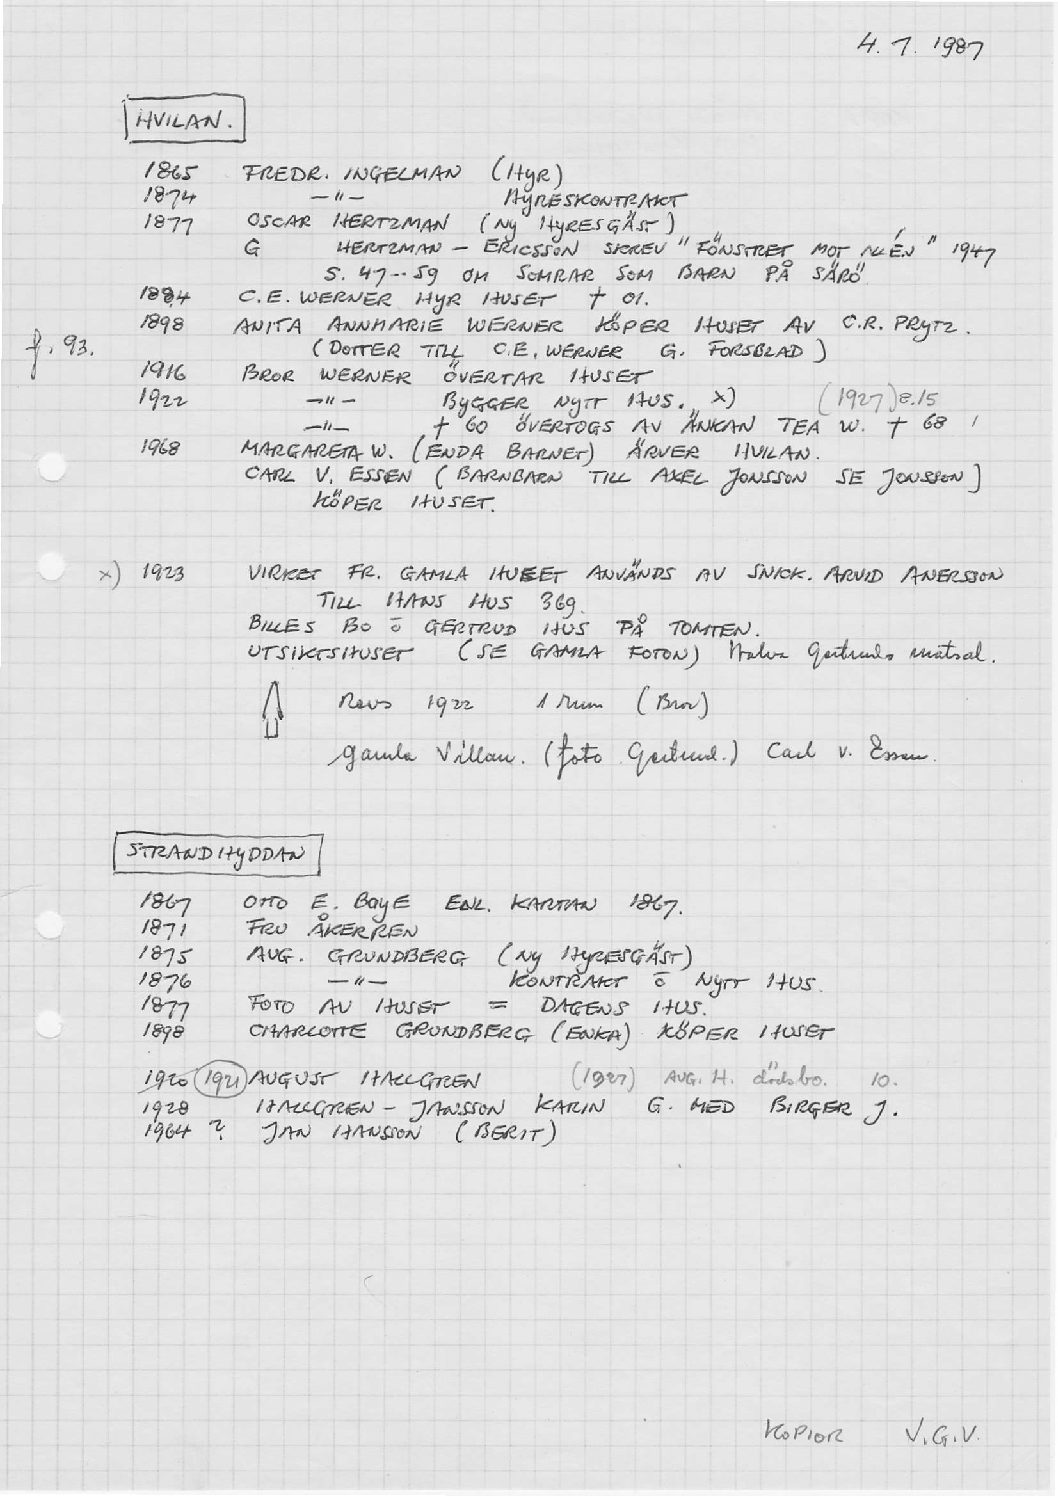 4.7.1987
HVILAN.
1865 FREDR. INGELMAN (HYR)
1874 —"— HYRESKONTRAKT
1877 OSCAR HERTZMAN (NY HYRESGÄST)
G HERTZMAN - ERICSSON SKREV "FÖNSTRET MOT ALLÉN" 1947
S. 47--59 OM SOMRAR SOM BARN PÅ SÄRÖ
1884 C.E. WERNER HYR HUSET † 01.
1898 ANITA ANNMARIE WERNER KÖPER HUSET AV C.R. PRYTZ.
f. 93. (DOTTER TILL C.E. WERNER G. FORSBLAD)
1916 BROR WERNER ÖVERTAR HUSET
1922 —"— BYGGER NYTT HUS. x) (1927) 8.15
—"— † 60 ÖVERTOGS AV ÄNKAN TEA W. † 68
1968 MARGARETA W. (ENDA BARNET) ÄRVER HVILAN.
CARL V. ESSEN (BARNBARN TILL AXEL JONSSON SE JONSSON)
KÖPER HUSET.
x) 1923 VIRKET FR. GAMLA HUSET ANVÄNDS AV SNICK. ARVID ANERSSON
TILL HANS HUS 369.
BILLES BO O GERTRUD HUS PÅ TOMTEN.
UTSIKTSHUSET (SE GAMLA FOTON) Halva Gertruds matsal.
Revs 1922 1 rum (Bror)
gamla Villan. (foto Gertrud.) Carl v. Essen.
STRANDHYDDAN
1867 OTTO E. BOYE ENL. KARTAN 1867.
1871 FRU ÅKERREN
1875 AUG. GRUNDBERG (NY HYRESGÄST)
1876 —"— KONTRAKT O NYTT HUS.
1877 FOTO AV HUSET = DAGENS HUS.
1898 CHARLOTTE GRUNDBERG (ENKA) KÖPER HUSET
1920 (1921) AUGUST HALLGREN (1927) AUG. H. dödsbo. 10.
1928 HALLGREN - JANSSON KARIN G. MED BIRGER J.
1964 ? JAN HANSSON (BERIT)
KOPIOR V.G.V.